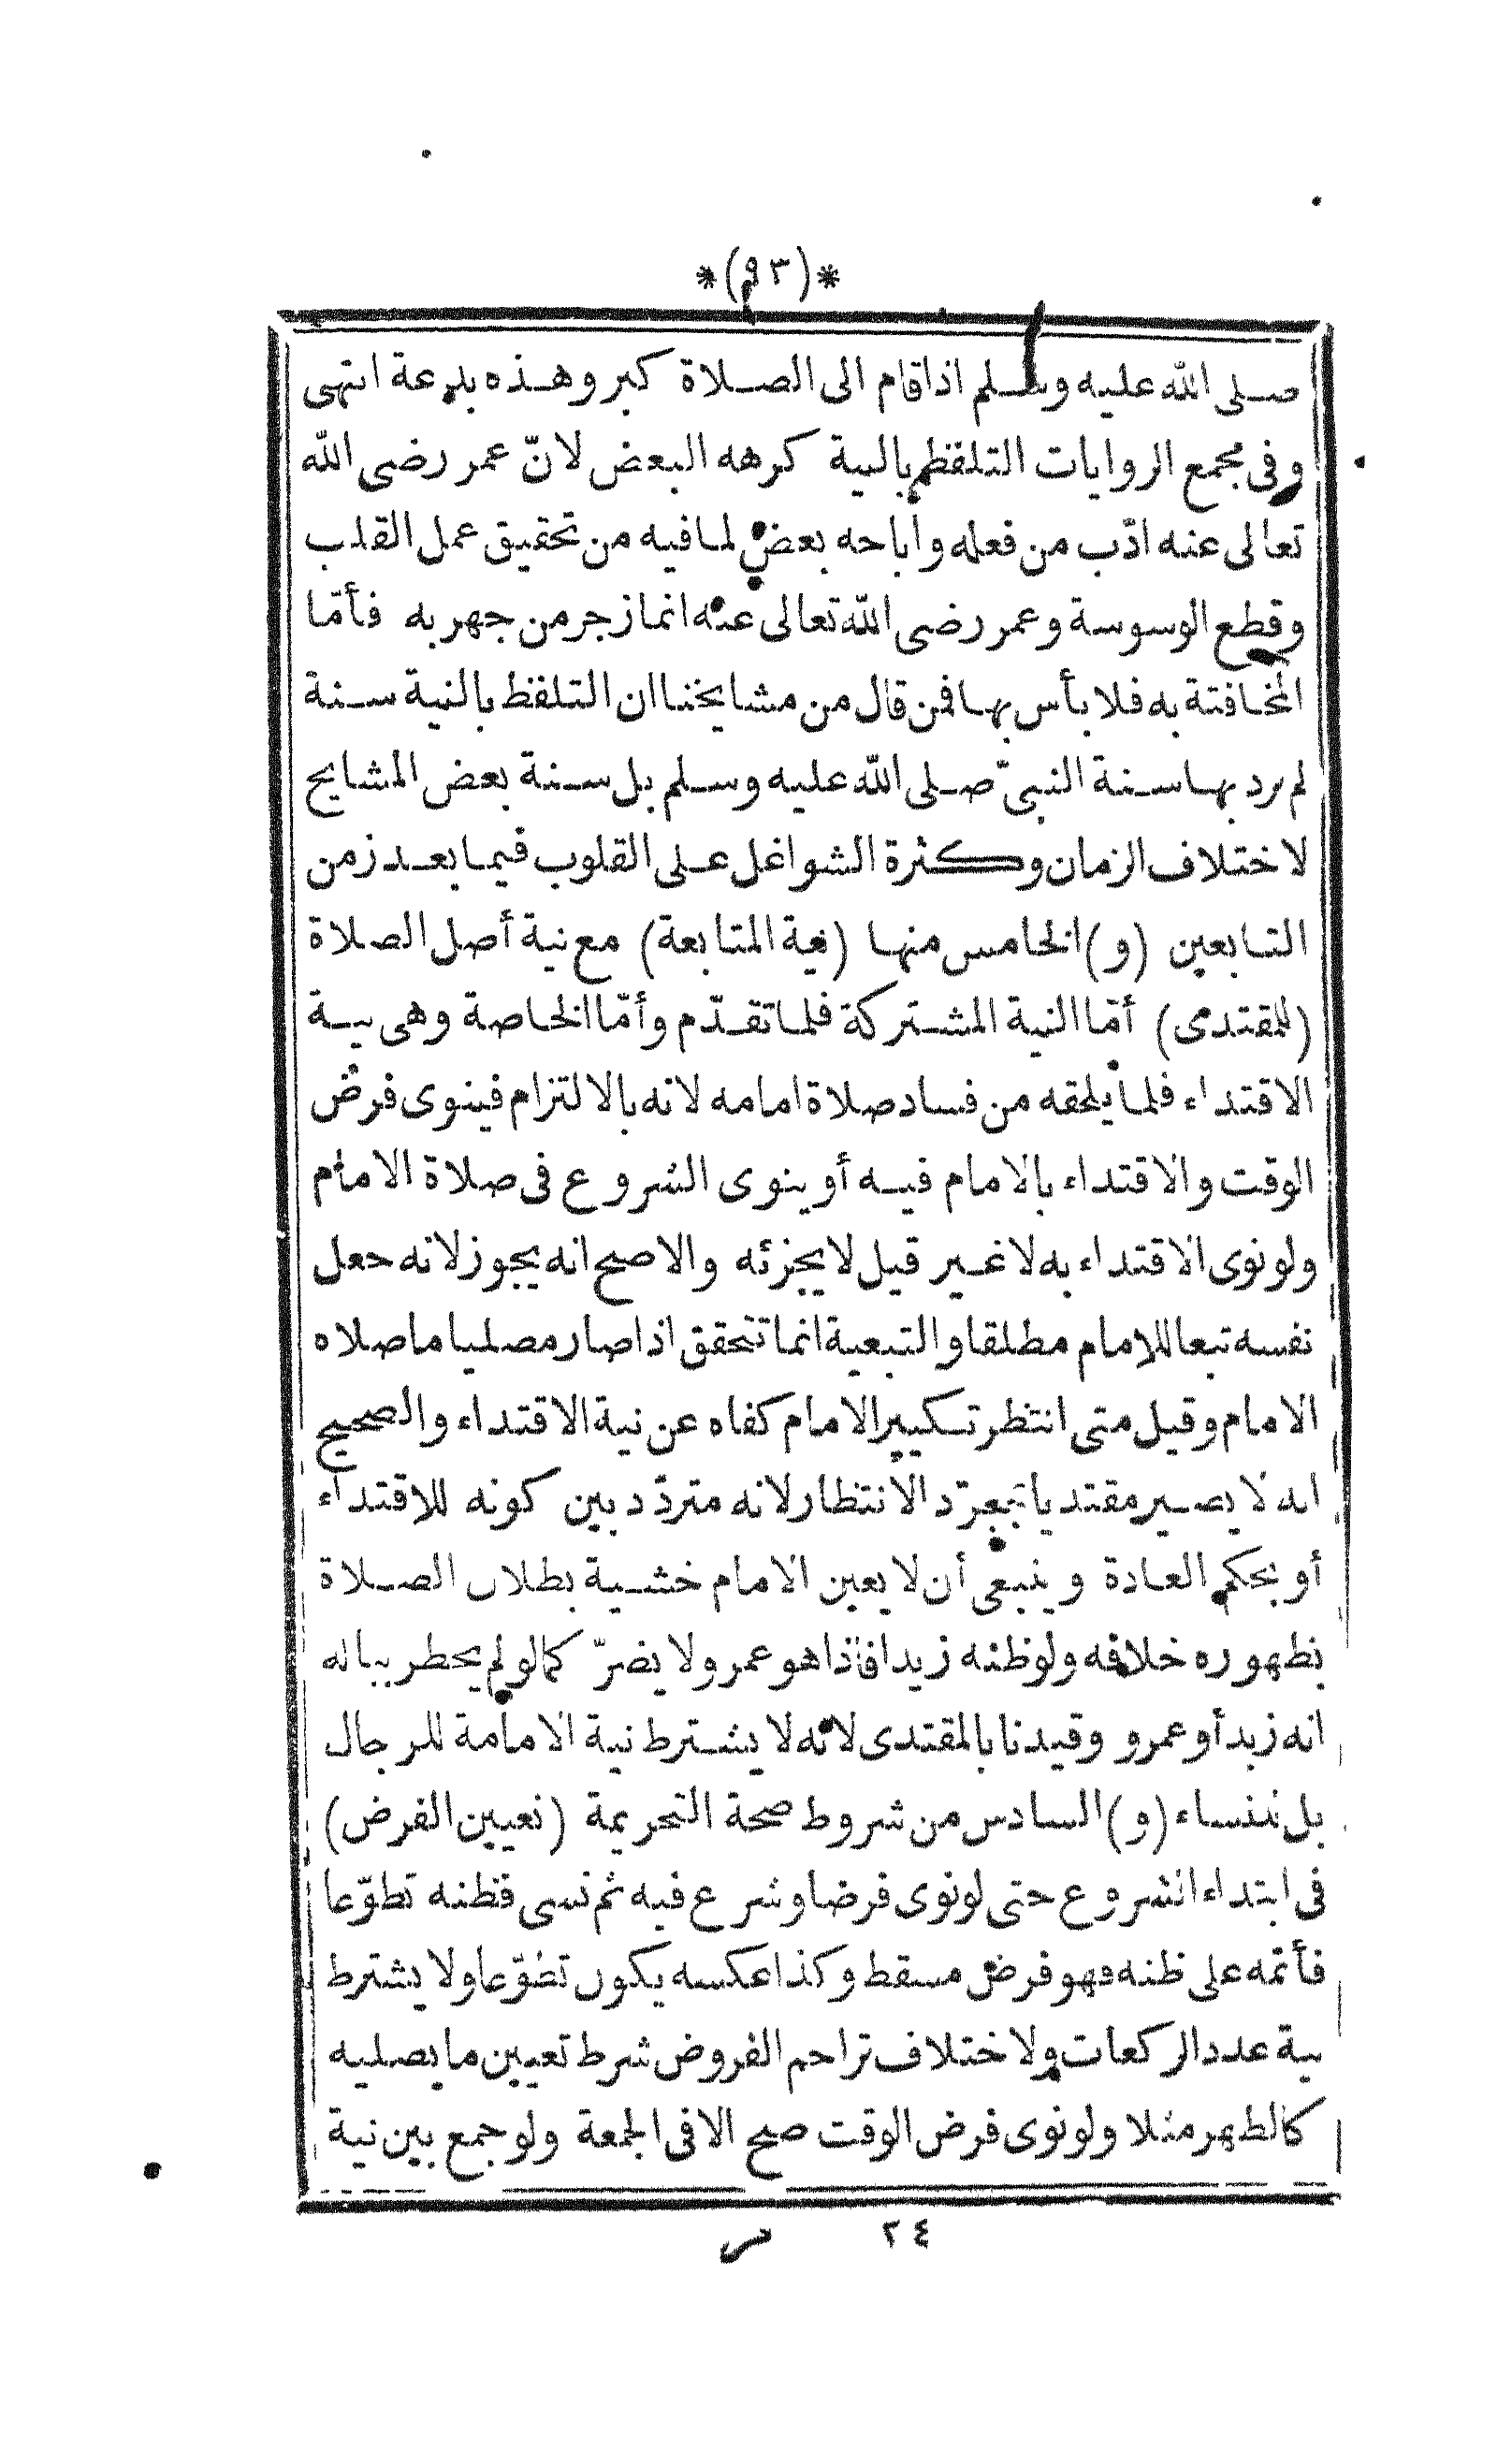 *(٩٣)*
صلى الله عليه وسلم اذا قام الى الصلاة كبر وهذه بدعة انتهى
وفى مجمع الروايات التلفظ بالنية كرهه البعض لانّ عمر رضى الله
تعالى عنه ادّب من فعله وأباحه بعض لما فيه من تحقيق عمل القلب
وقطع الوسوسة وعمر رضى الله تعالى عنه انما زجر من جهر به فأمّا
المخافتة به فلا بأس بها فمن قال من مشايخنا ان التلفظ بالنية سنة
لم يرد بها سنة النبىّ صلى الله عليه وسلم بل سنة بعض المشايخ
لاختلاف الزمان وكثرة الشواغل على القلوب فيما بعد زمن
التابعين (و) الخامس منها (نية المتابعة) مع نية أصل الصلاة
(للمقتدى) أمّا النية المشتركة فلما تقدّم وأمّا الخاصة وهى نية
الاقتداء فلما يلحقه من فساد صلاة امامه لانه بالالتزام فينوى فرض
الوقت والاقتداء بالامام فيه أو ينوى الشروع فى صلاة الامام
ولو نوى الاقتداء به لا غير قيل لا يجزئه والاصح انه يجوز لانه جعل
نفسه تبعا للامام مطلقا والتبعية انما تتحقق اذا صار مصليا ما صلاه
الامام وقيل متى انتظر تكبير الامام كفاه عن نية الاقتداء والصحيح
انه لا يصير مقتديا بمجرّد الانتظار لانه متردّد بين كونه للاقتداء
أو بحكم العادة وينبغى أن لا يعين الامام خشية بطلان الصلاة
بظهوره خلافه ولو ظنه زيدا فاذا هو عمرو لا يضرّ كما لو لم يخطر بباله
انه زيد أو عمرو وقيدنا بالمقتدى لانه لا يشترط نية الامامة للرجال
بل للنساء (و) السادس من شروط صحة التحريمة (تعيين الفرض)
فى ابتداء الشروع حتى لو نوى فرضا وشرع فيه ثم نسى فظنه تطوّعا
فأتمه على ظنه فهو فرض مسقط وكذا عكسه يكون تطوّعا ولا يشترط
نية عدد الركعات ولاختلاف تزاحم الفروض شرط تعيين ما يصليه
كالظهر مثلا ولو نوى فرض الوقت صح الا فى الجمعة ولو جمع بين نية
٢٤ مر